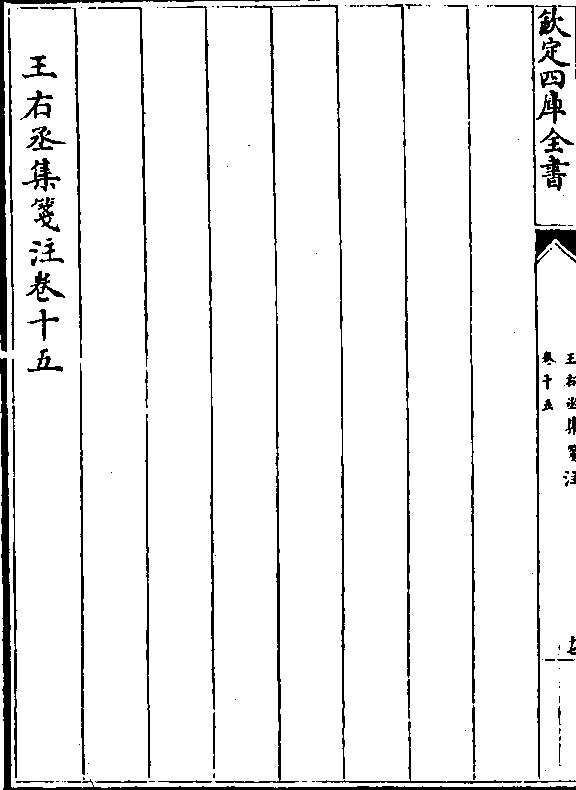 欽定四庫全書
王右丞集箋注
卷十五
王右丞集箋注卷十五